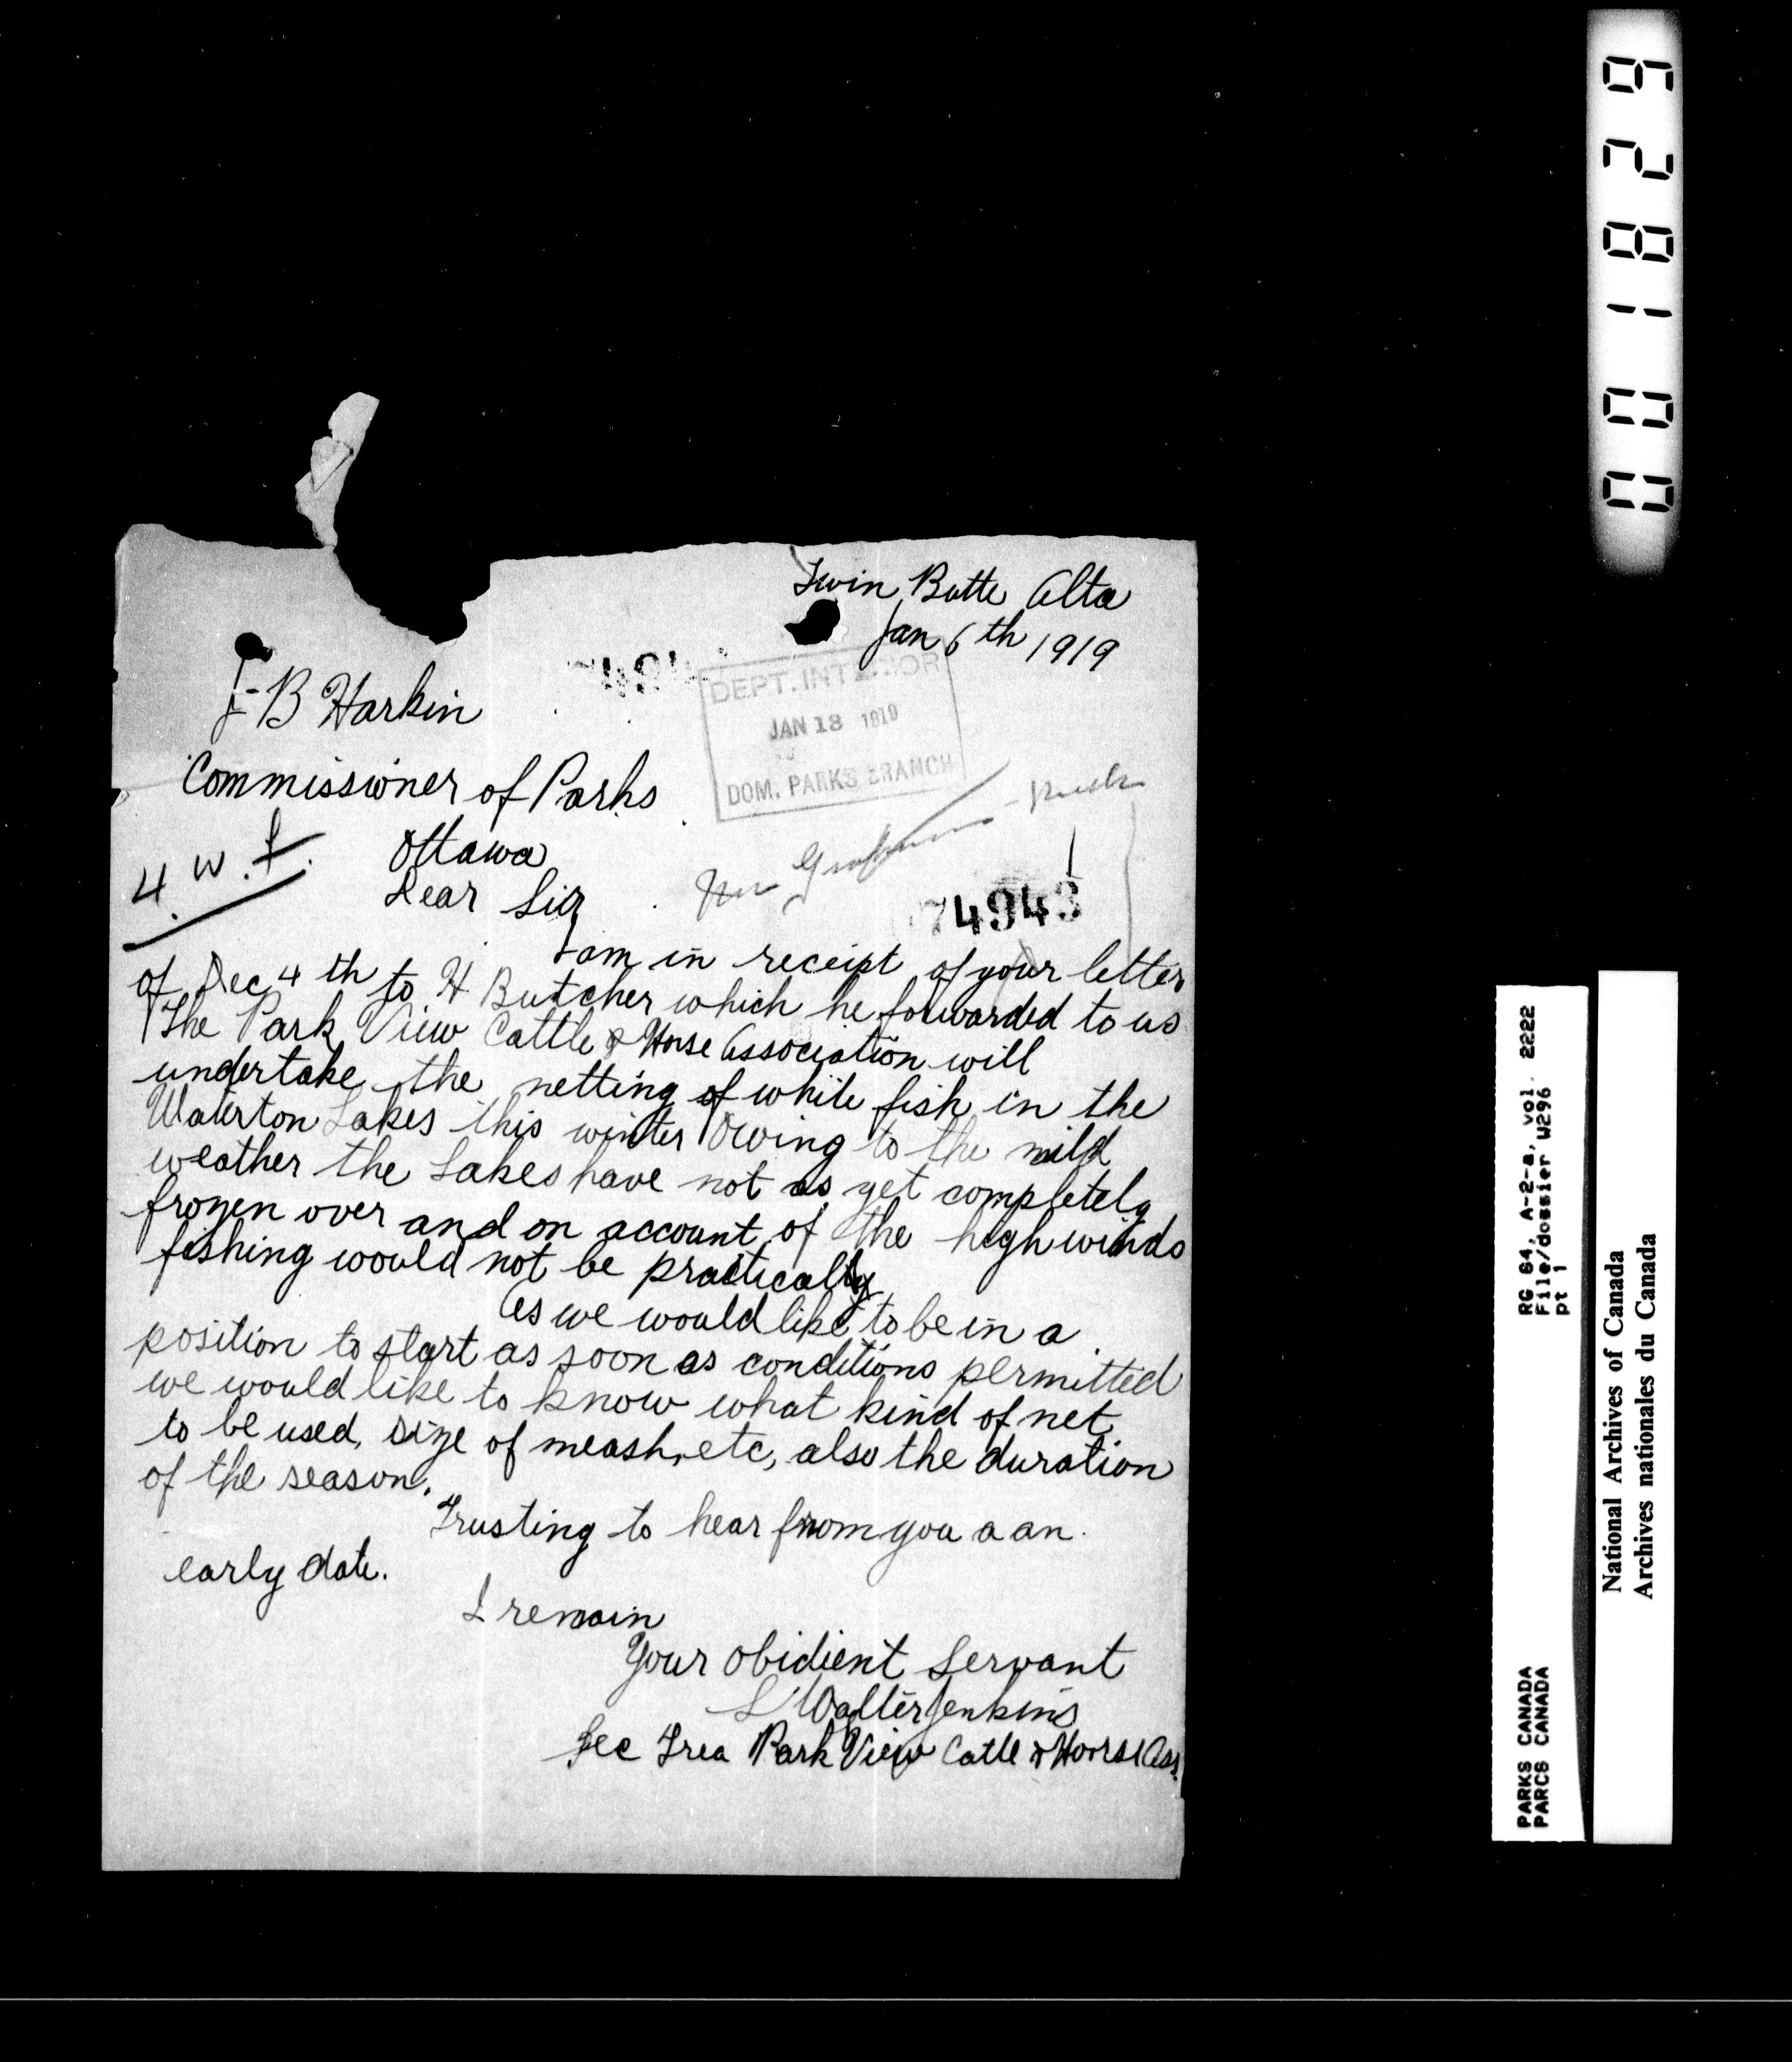 Twin Butte Alta
Jan 6th 1919
DEPT. INTERIOR
JAN 13 1919
DOM. PARKS BRANCH
J-B Harkin
Commissioner of Parks
Ottawa
4 W. f.
Dear Sir
74943
I am in receipt of your letter
of Dec 4th to H Butcher which he forwarded to us
The Park View Cattle & Horse Association will
undertake the netting of white fish in the
Waterton Lakes this winter Owing to the mild
weather the Lakes have not as yet completely
frozen over and on account of the high winds
fishing would not be practically
As we would like to be in a
position to start as soon as conditions permitted
we would like to know what kind of net
to be used, size of meash, etc, also the duration
of the season.
Trusting to hear from you a an
early date.
I remain
Your obidient Servant
L Walter Jenkins
Sec Trea Park View Catle & Horse Ass.
001829
RG 84, A-2-a, vol. 2222
File/dossier W296
pt 1
PARKS CANADA
PARCS CANADA
National Archives of Canada
Archives nationales du Canada